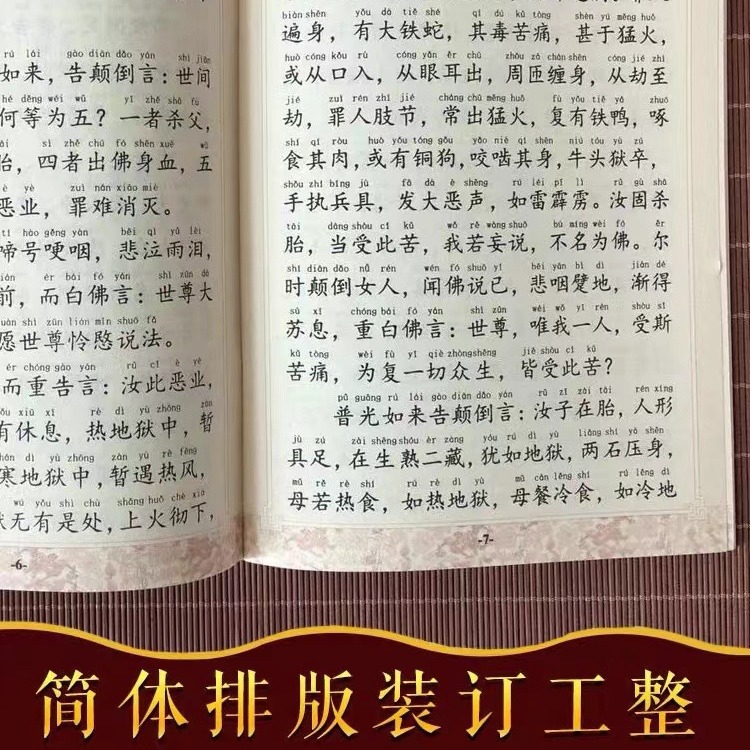 rú lái gào diān dǎo yán shì jiān
如来，告颠倒言：世间
hé děng wéi wǔ yī zhě shā fù
何等为五？一者杀父，
tāi sì zhě chū fó shēn xuè wǔ
胎，四者出佛身血，五
è yè zuì nán xiāo miè
恶业，罪难消灭。
tí háo gěng yè bēi qì yǔ lèi
啼号哽咽，悲泣雨泪，
qián ér bái fó yán shì zūn dà
前，而白佛言：世尊大
yuàn shì zūn lián mǐn shuō fǎ
愿世尊怜愍说法。
ér chóng gào yán rǔ cǐ è yè
而重告言：汝此恶业，
yǒu xiū xī rè dì yù zhōng zàn
有休息，热地狱中，暂
hán dì yù zhōng zàn yù rè fēng
寒地狱中，暂遇热风，
yù wú yǒu shì chù shàng huǒ chè xià
狱无有是处，上火彻下，
-6-
biàn shēn yǒu dà tiě shé qí dú kǔ tòng shèn yú měng huǒ
遍身，有大铁蛇，其毒苦痛，甚于猛火，
huò cóng kǒu rù cóng yǎn ěr chū zhōu zā chán shēn cóng jié zhì
或从口入，从眼耳出，周匝缠身，从劫至
jié zuì rén zhī jié cháng chū měng huǒ fù yǒu tiě yā zhuó
劫，罪人肢节，常出猛火，复有铁鸭，啄
shí qí ròu huò yǒu tóng gǒu yǎo niè qí shēn niú tóu yù zú
食其肉，或有铜狗，咬啮其身，牛头狱卒，
shǒu zhí bīng jù fā dà è shēng rú léi pī lì rǔ gù shā
手执兵具，发大恶声，如雷霹雳。汝固杀
tāi dāng shòu cǐ kǔ wǒ ruò wàng shuō bù míng wéi fó ěr
胎，当受此苦，我若妄说，不名为佛。尔
shí diān dǎo nǚ rén wén fó shuō yǐ bēi yàn bì dì jiàn dé
时颠倒女人，闻佛说已，悲咽躄地，渐得
sū xī chóng bái fó yán shì zūn wéi wǒ yī rén shòu sī
苏息，重白佛言：世尊，唯我一人，受斯
kǔ tòng wéi fù yī qiè zhòng shēng jiē shòu cǐ kǔ
苦痛，为复一切众生，皆受此苦？
pǔ guāng rú lái gào diān dǎo yán rǔ zǐ zài tāi rén xíng
普光如来告颠倒言：汝子在胎，人形
jù zú zài shēng shóu èr zàng yóu rú dì yù liǎng shí yā shēn
具足，在生熟二藏，犹如地狱，两石压身，
mǔ ruò rè shí rú rè dì yù mǔ cān lěng shí rú lěng dì
母若热食，如热地狱，母餐冷食，如冷地
-7-
简体排版装订工整